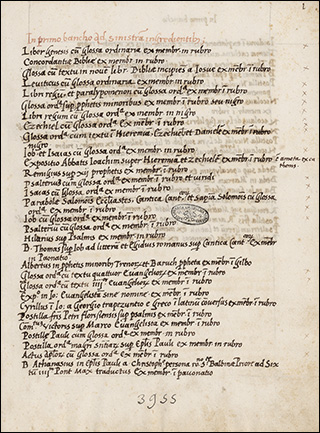 1
In primo bancho ad sinistrā ingredientibus
Liber genesis cū glossa ordinaria ex membr. in rubro
Concordantie Bibliæ ex membr in rubro
Glossa cū textu in novē libr. Bibliæ incipiēs a Iosue ex mēbr ī rubro
Leviticus cū glossa ordinaria. ex membr in rubro
Libri regū et paralypomenon cū glossa ordᵃ. ex mēbr. in rubro
Glossa ordᵃ. sup pphetis minoribus ex membr ī rubro seu nigro
Libri regum cū glossa ordᵃ. ex membr in nigro
Ezechiel cū Glossa ordᵃ. ex mēbr ī rubro
Glossa ordᵃ cum textu ī Hieremia. Ezechiel et Daniele ex mēbr ī rubro
nigro
Iob et Isaias cū glossa ex membr. in rubro
Expositio Abbatis Ioachim super Hieremia et Ezechiele ex mēbr ī rubro
Remigius sup xij prophetis ex membr in rubro
Psalterium cum glossa ordᵃ ex mēbr in rubro et viridi
Isaias cū glossa ordᵃ ex membr in rubro
Parabole Salomonis Ecclīastes. Cantica Canᵗ. et Sapia. Salomōis cū glossa
ordᵃ. ex membr ī rubro
Iob cū glossa ordᵃ ex membr in rubro
Psalteriū cū glossa ordᵃ. ex membr in rubro
Hilarius sup Psalmis ex membr in rubro
D. Thomas sup Iob ad litterā et Egidius romanus sup Cantica Canᵗ. Ex mēbr
in Pavonatio
Albertus in pphetis minoribꝫ Trenos et Baruch ppheta ex mēbr ī gilbo
Glossa ordᵃ cū textu quattuor Euangelioꝝ ex mēbr ī rubro
Glossa ordᵃ cū textu iiijᵒʳ Euangelioꝝ ex mēbr ī rubro
Expᵒ in Io. Euangelistā sine nomine ex mēbr ī rubro
Cyrillus ī Io. a Georgio trapezuntio e greco ī latinū cōversus ex mēbr ī rubro
Postilla fris Petri sup psalmis ex mēbr ī rubro
Victoris sup Marco Euangelista ex membr in rubro
Postille Pauli cum glossa ex membr in rubro
Postilla magri sup Eplīs Pauli ex membr in rubro
Actus aplōꝝ cū Glossa ordᵃ ex mēbr in rubro
B Athanasius in Eplīs Pauli a Christophᵒ persona Balbinæ Priore ad Six
tū iiijᵗᵘ Pont Max traductus Ex membr ī pavonatio
3955